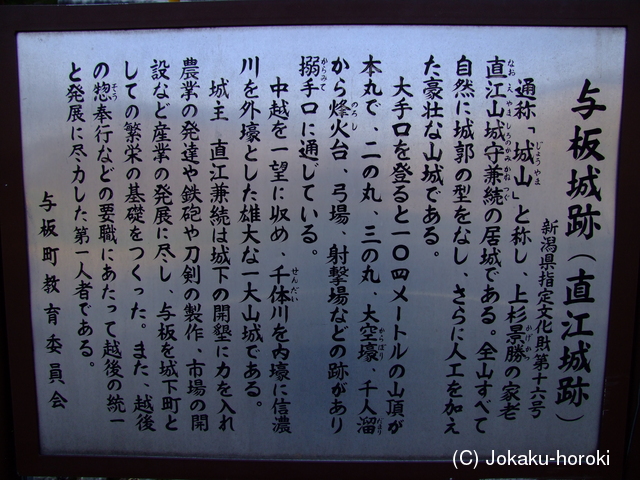 与板城跡（直江城跡）
新潟県指定文化財第十六号
通称「城山」と称し、上杉景勝の家老
直江山城守兼続の居城である。全山すべて
自然に城郭の型をなし、さらに人工を加え
た豪壮な山城である。
大手口を登ると一〇四メートルの山頂が
本丸で、二の丸、三の丸、大空壕、千人溜
から烽火台、弓場、射撃場などの跡があり
搦手口に通じている。
中越を一望に収め、千体川を内壕に信濃
川を外壕とした雄大な一大山城である。
城主　直江兼続は城下の開墾に力を入れ
農業の発達や鉄砲や刀剣の製作、市場の開
設など産業の発展に尽し、与板を城下町と
しての繁栄の基礎をつくった。また、越後
の惣奉行などの要職にあたって越後の統一
と発展に尽力した第一人者である。
与板町教育委員会
(C) Jokaku-horoki